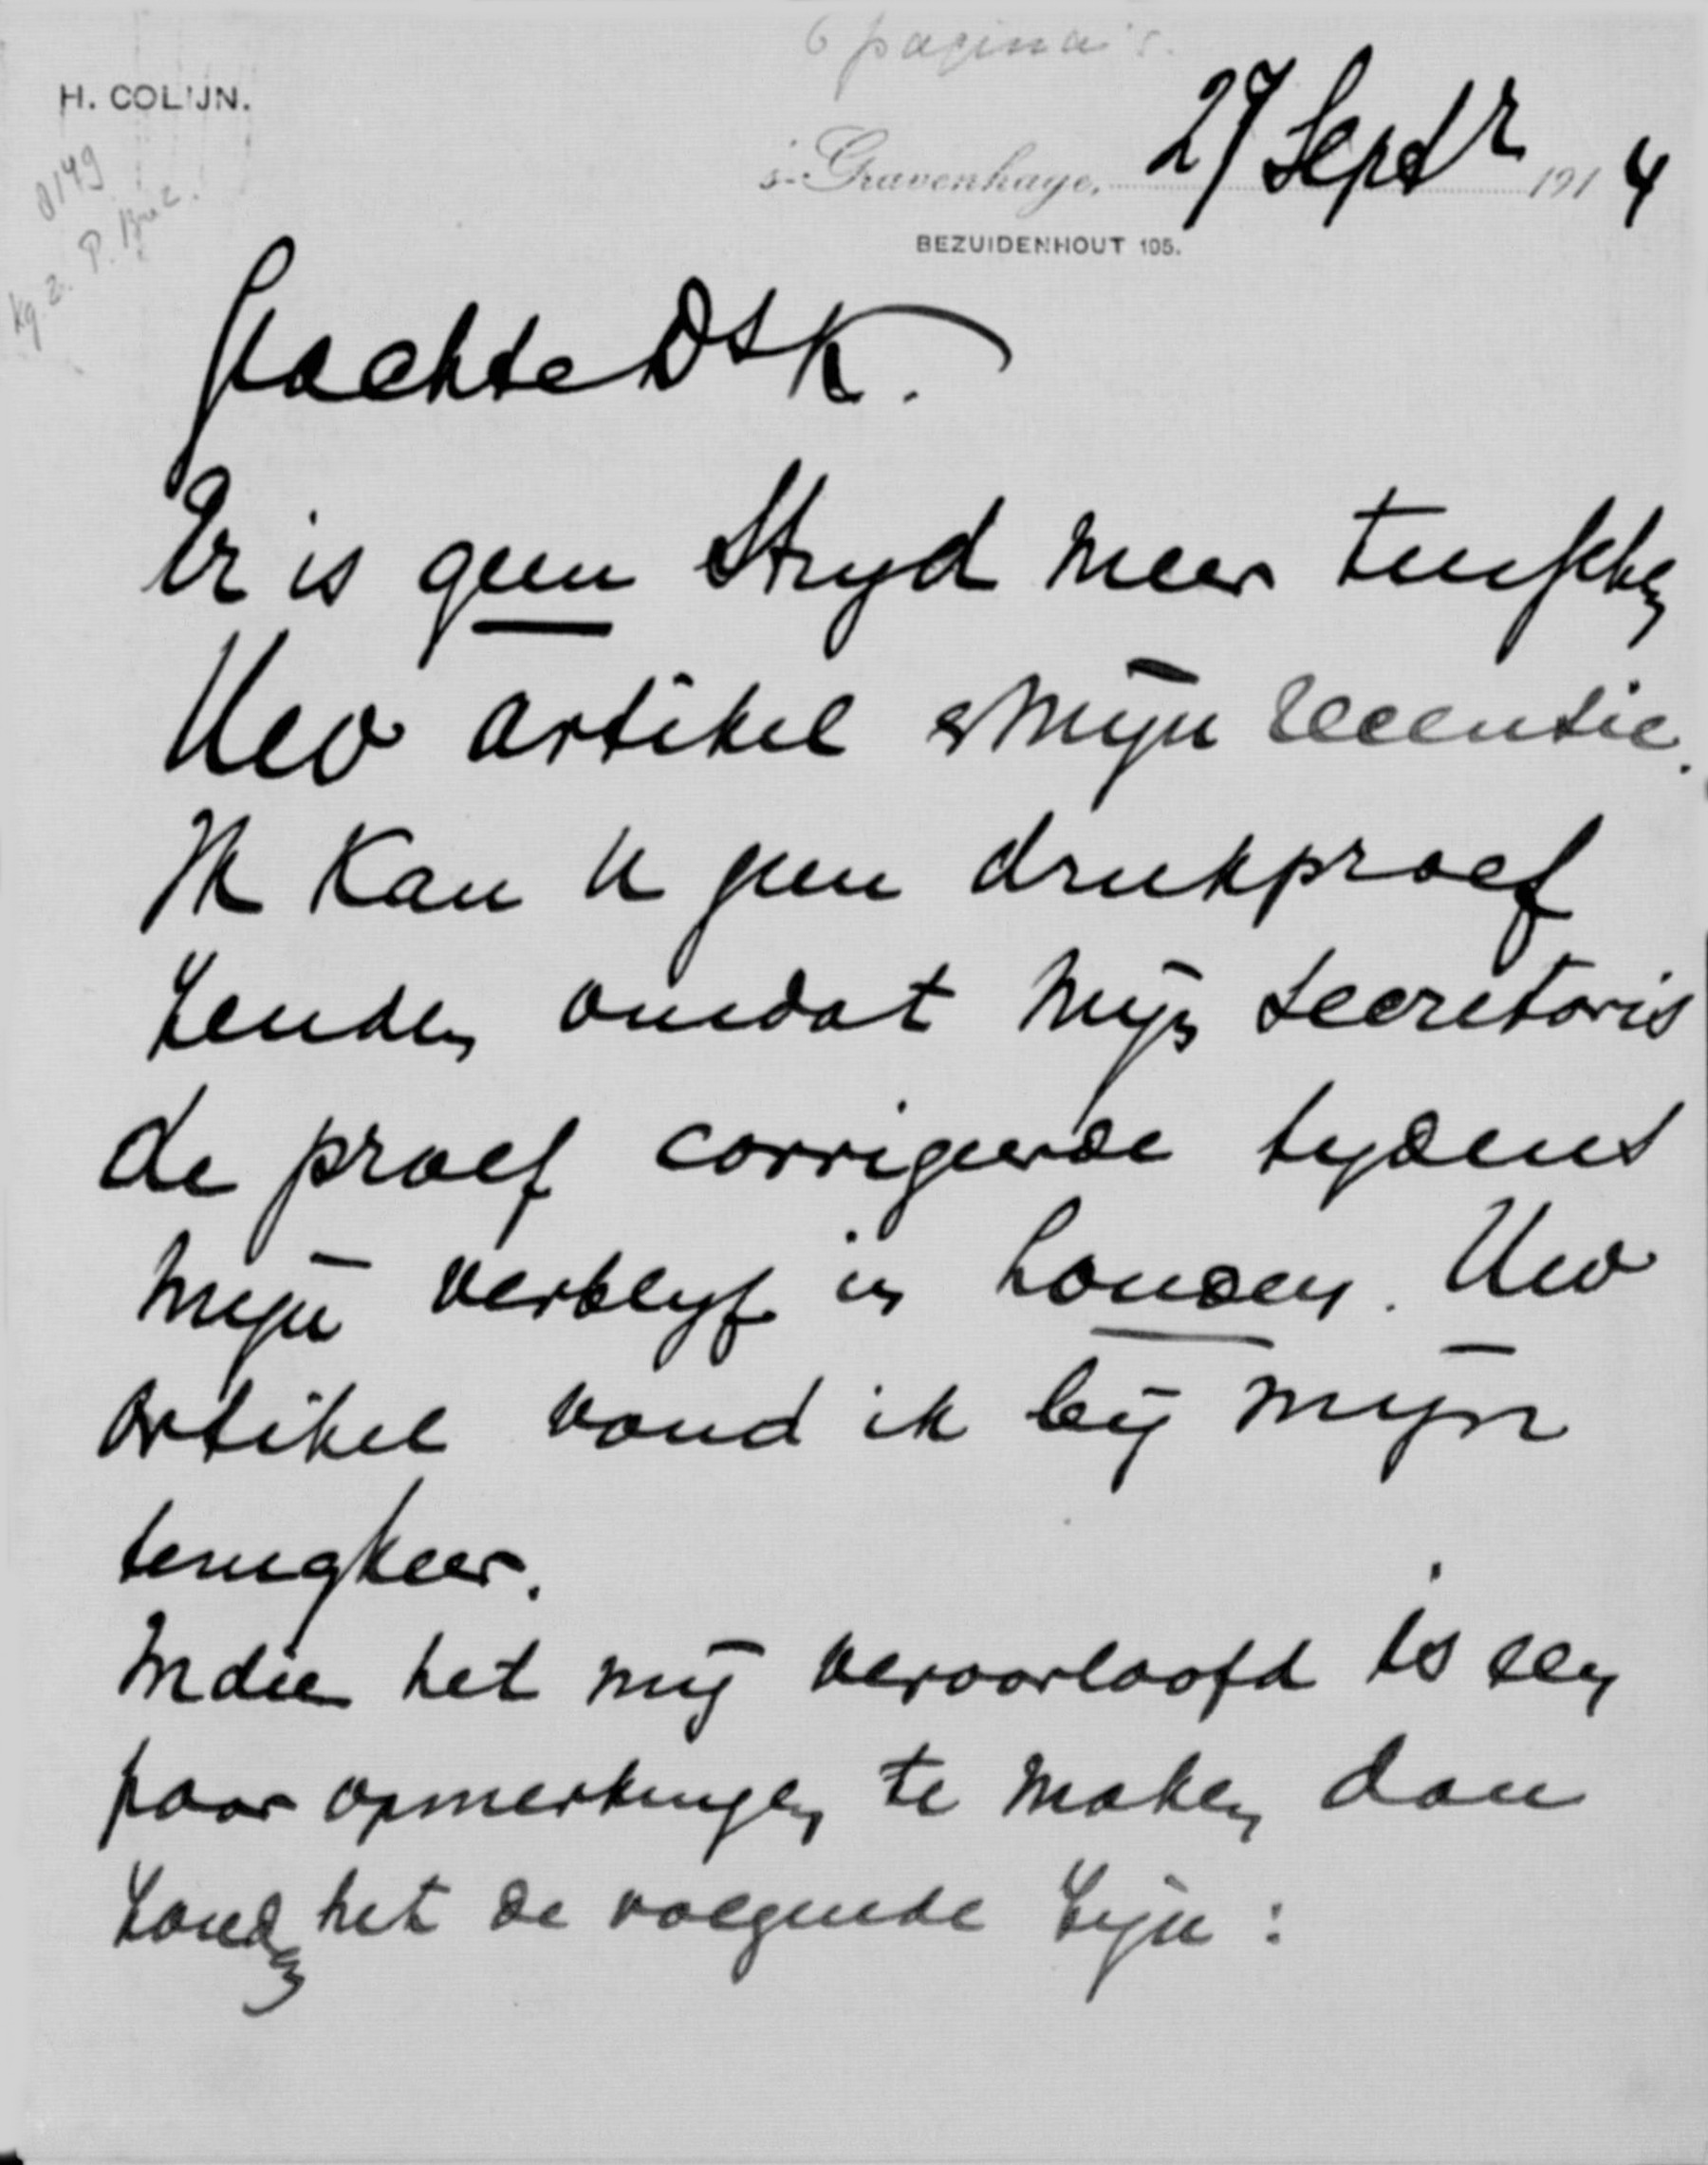 6 pagina's.
H. COLIJN.
8149
's-Gravenhage, 27 Septr 1914
BEZUIDENHOUT 105.
Geachte DsK.
Er is geen strijd meer tusschen
Uw artikel & mijn recensie.
Ik kan U geen drukproef
zenden omdat mijn secretaris
de proef corrigeerde tijdens
mijn verblijf in Londen. Uw
artikel vond ik bij mijn
terugkeer.
Indien het mij veroorloofd is een
paar opmerkingen te maken dan
zouden het de volgende zijn: